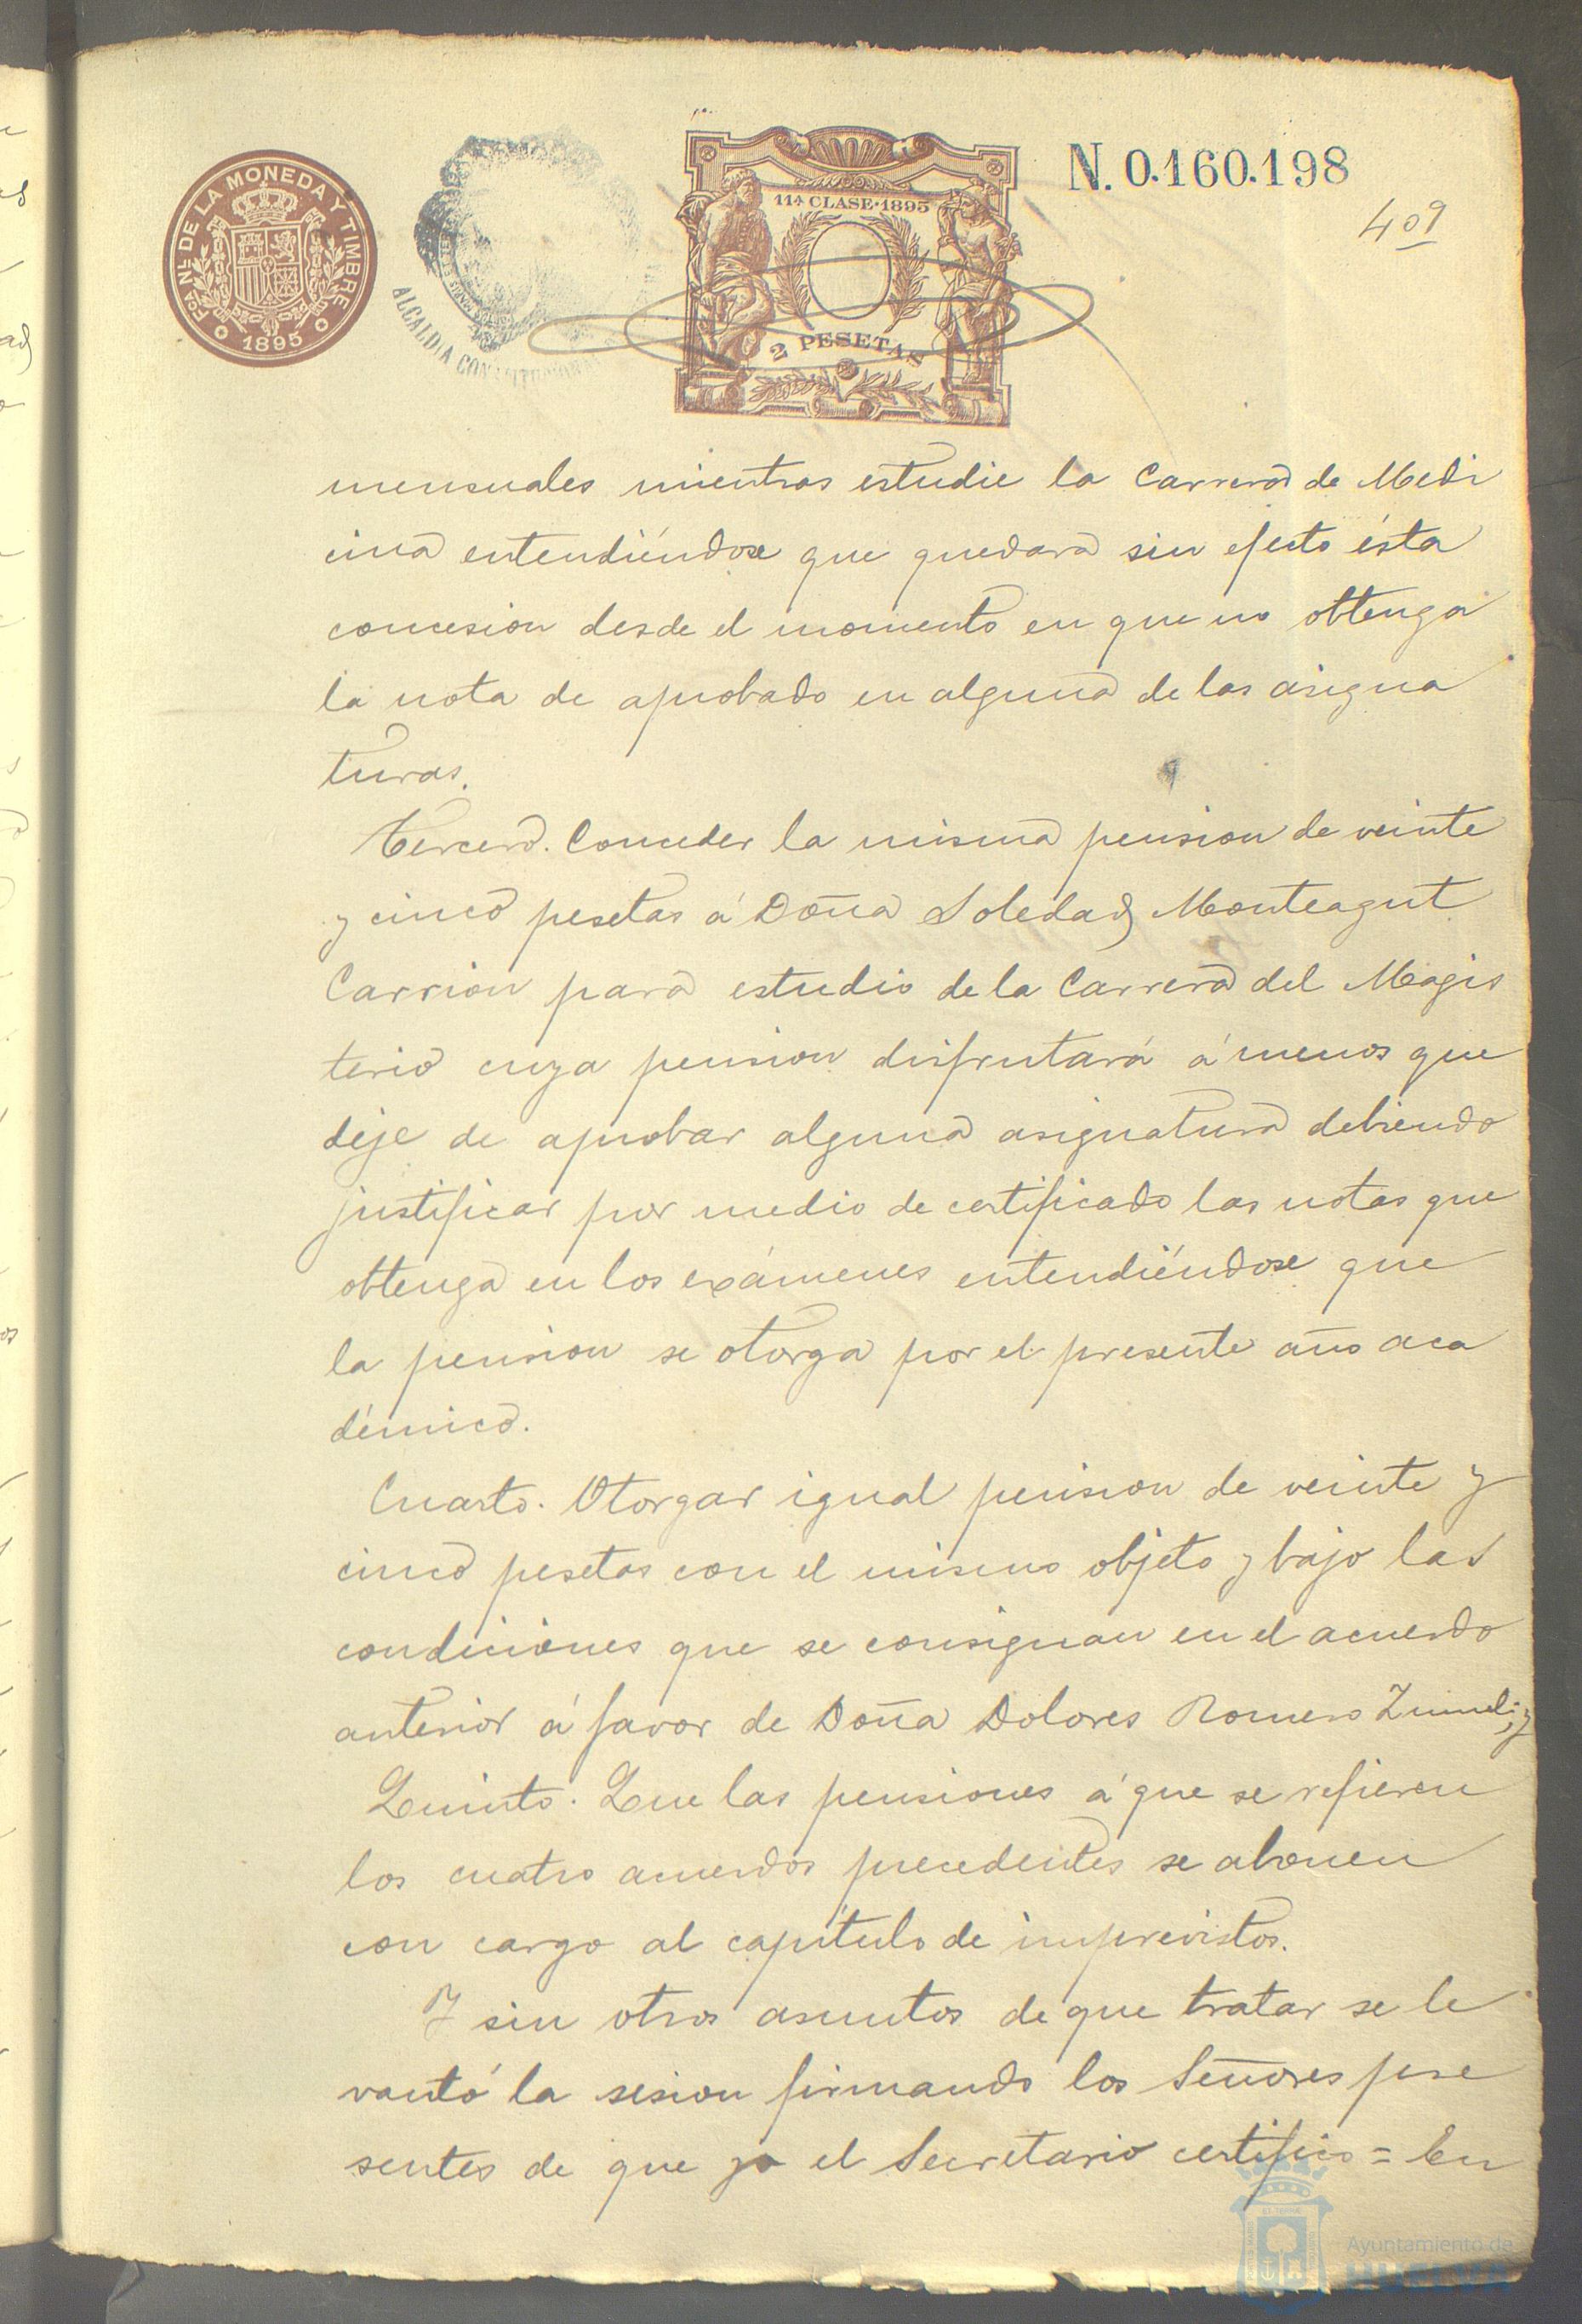 FCA NL DE LA MONEDA Y TIMBRE
1895
ALCALDIA CONSTITUCIONAL
11ª CLASE·1895
2 PESETAS
N. 0.160.198
409
mensuales mientras estudie la Carrera de Medi
cina entendiéndose que quedará sin efecto ésta
concesion desde el momento en que no obtenga
la nota de aprobado en alguna de las asigna
turas.
Tercero. Conceder la misma pension de veinte
y cinco pesetas á Doña Soledad Monteagut
Carrion para estudio de la Carrera del Magis
terio cuya pension disfrutará á menos que
deje de aprobar alguna asignatura debiendo
justificar por medio de certificado las notas que
obtenga en los exámenes entendiéndose que
la pension se otorga por el presente año aca
démico.
Cuarto. Otorgar igual pension de veinte y
cinco pesetas con el mismo objeto y bajo las
condiciones que se consignan en el acuerdo
anterior á favor de Doña Dolores Romero
Quinto. Que las pensiones á que se refieren
los cuatro acuerdos precedentes se abonen
con cargo al capítulo de imprevistos.
Y sin otros asuntos de que tratar se le
vantó la sesion firmando los Señores pre
sentes de que yo el Secretario certifico = En
Ayuntamiento de
HUELVA